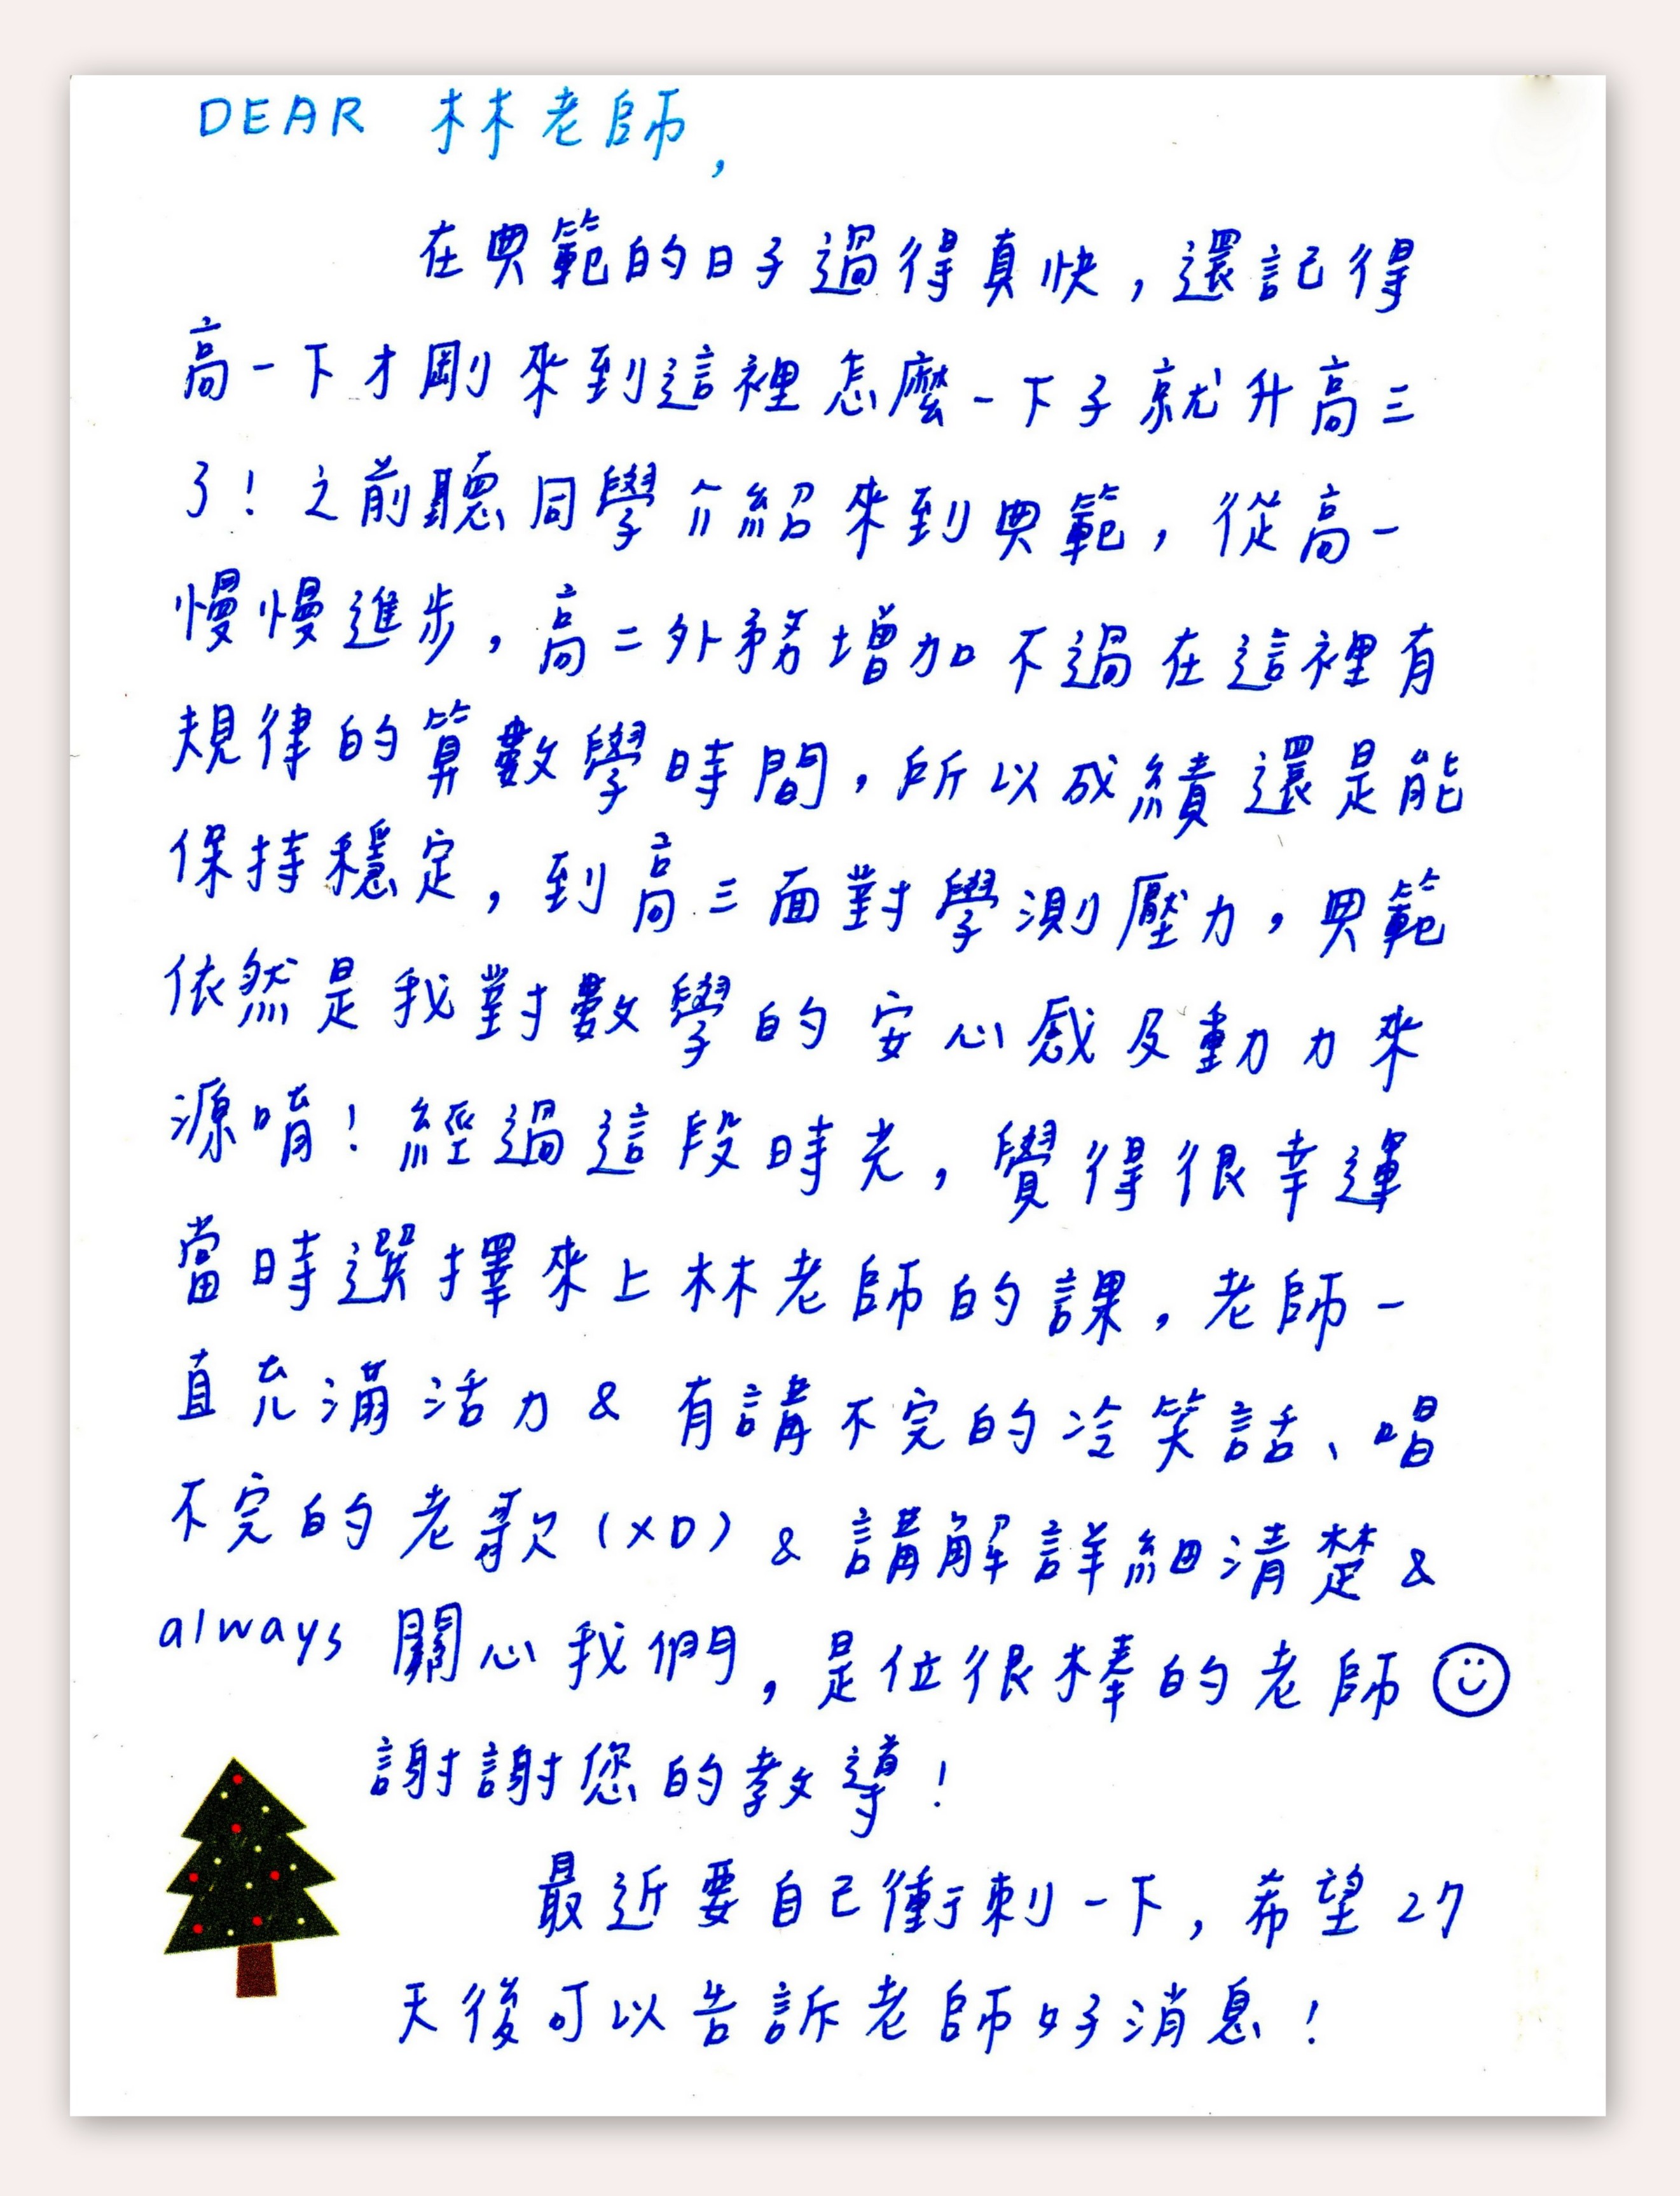 DEAR 林老師,
在典範的日子過得真快，還記得
高一下才剛來到這裡怎麼一下子就升高三
了！之前聽同學介紹來到典範，從高一
慢慢進步，高二外務增加不過在這裡有
規律的算數學時間，所以成績還是能
保持穩定，到高三面對學測壓力，典範
依然是我對數學的安心感及動力來
源唷！經過這段時光，覺得很幸運
當時選擇來上林老師的課，老師一
直充滿活力 & 有講不完的冷笑話、唱
不完的老歌(XD) & 講解詳細清楚 &
always 關心我們，是位很棒的老師
謝謝您的教導！
最近要自己衝刺一下，希望27
天後可以告訴老師好消息！